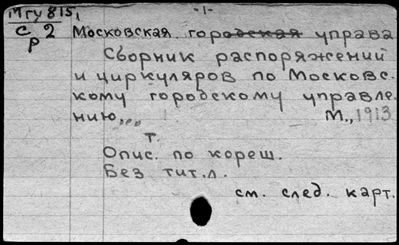 МГУ 815,
-1-
С 2
р
Московская городская управа
Сборник распоряжений
и циркуляров по Московс-
кому городскому управле-
нию...
М., 1913
т.
Опис. по кореш.
Без тит.л.
см. след. карт.